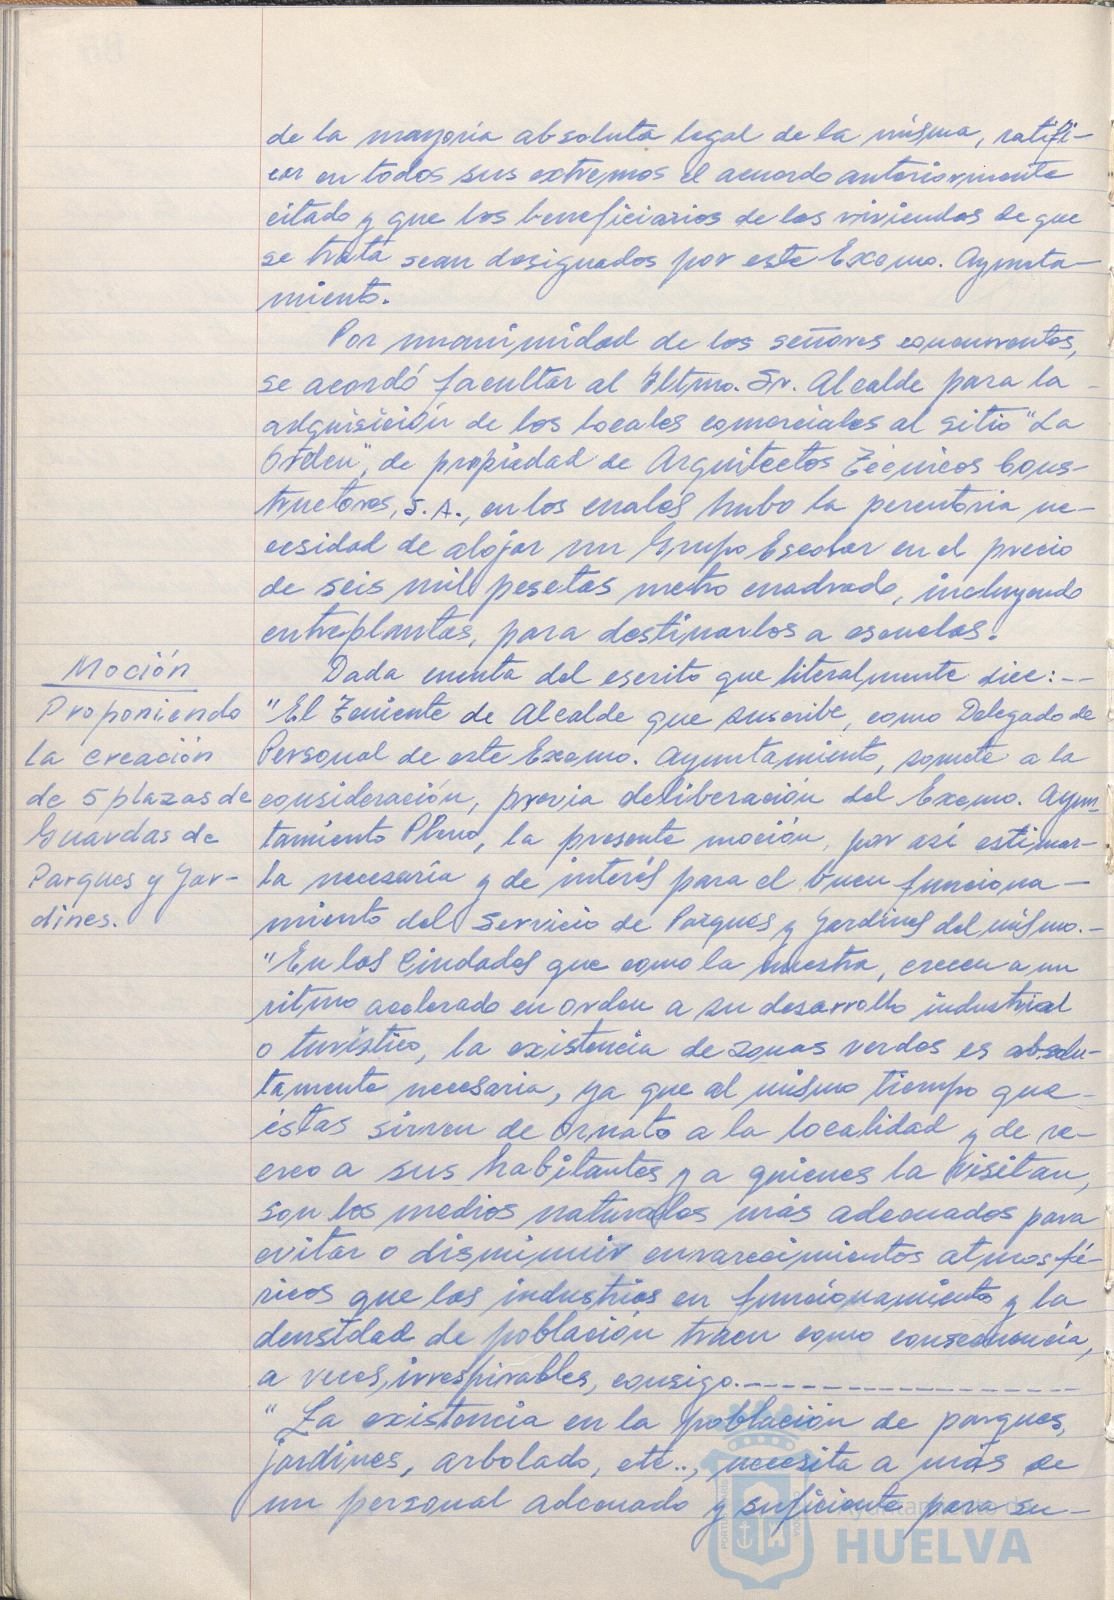 de la mayoría absoluta legal de la misma, ratifi-
car en todos sus extremos el acuerdo anteriormente
citado y que los beneficiarios de las viviendas de que
se trata sean designados por este Excmo. Ayunta-
miento.
Por unanimidad de los señores concurrentes,
se acordó facultar al Iltmo. Sr. Alcalde para la
adquisición de los locales comerciales al sitio "La
Orden", de propiedad de Arquitectos Técnicos Cons-
tructores, S.A., en los cuales hubo la perentoria ne-
cesidad de alojar un Grupo Escolar en el precio
de seis mil pesetas metro cuadrado, incluyendo
entreplantas, para destinarlos a escuelas.
Moción
Proponiendo
la creación
de 5 plazas de
Guardas de
Parques y Jar-
dines.
Dada cuenta del escrito que literalmente dice:--
"El Teniente de Alcalde que suscribe, como Delegado de
Personal de este Excmo. Ayuntamiento, somete a la
consideración, previa deliberación del Excmo. Ayun-
tamiento Pleno, la presente moción, por así estimar-
la necesaria y de interés para el buen funciona-
miento del Servicio de Parques y Jardines del mismo.-
"En las Ciudades que como la nuestra, crecen a un
ritmo acelerado en orden a su desarrollo industrial
o turístico, la existencia de zonas verdes es absolu-
tamente necesaria, ya que al mismo tiempo que
éstas sirven de ornato a la localidad y de re-
creo a sus habitantes y a quienes la visitan,
son los medios naturales más adecuados para
evitar o disminuir enrarecimientos atmosfé-
ricos que las industrias en funcionamiento y la
densidad de población traen como consecuencia,
a veces, irrespirables, consigo.----------------
"La existencia en la población de parques,
jardines, arbolado, etc.., necesita a más de
un personal adecuado y suficiente para su-
Ayuntamiento de
HUELVA